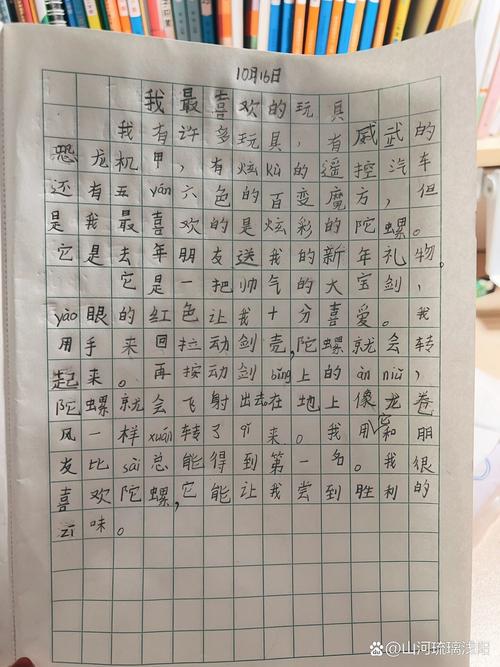 10月16日
我最喜欢的玩具
我有许多玩具，有威武的
恐龙机甲，有炫kù的遥控汽车
还有五yán六色的百变魔方，但
是我最喜欢的是炫彩的陀螺。
它是去年朋友送我的新年礼物。
它是一把帅气的大宝剑，
yào眼的红色让我十分喜爱。我
用手来回拉动剑壳，陀螺就会转
起来。再按动剑bǐng上的àn niǔ，
陀螺就会飞射出去在地上像龙卷
风一样xuán转了起来。我用它和朋
友比sài总能得到第一名。我很
喜欢陀螺，它能让我尝到胜利的
zī味。
山河琉璃浅阳